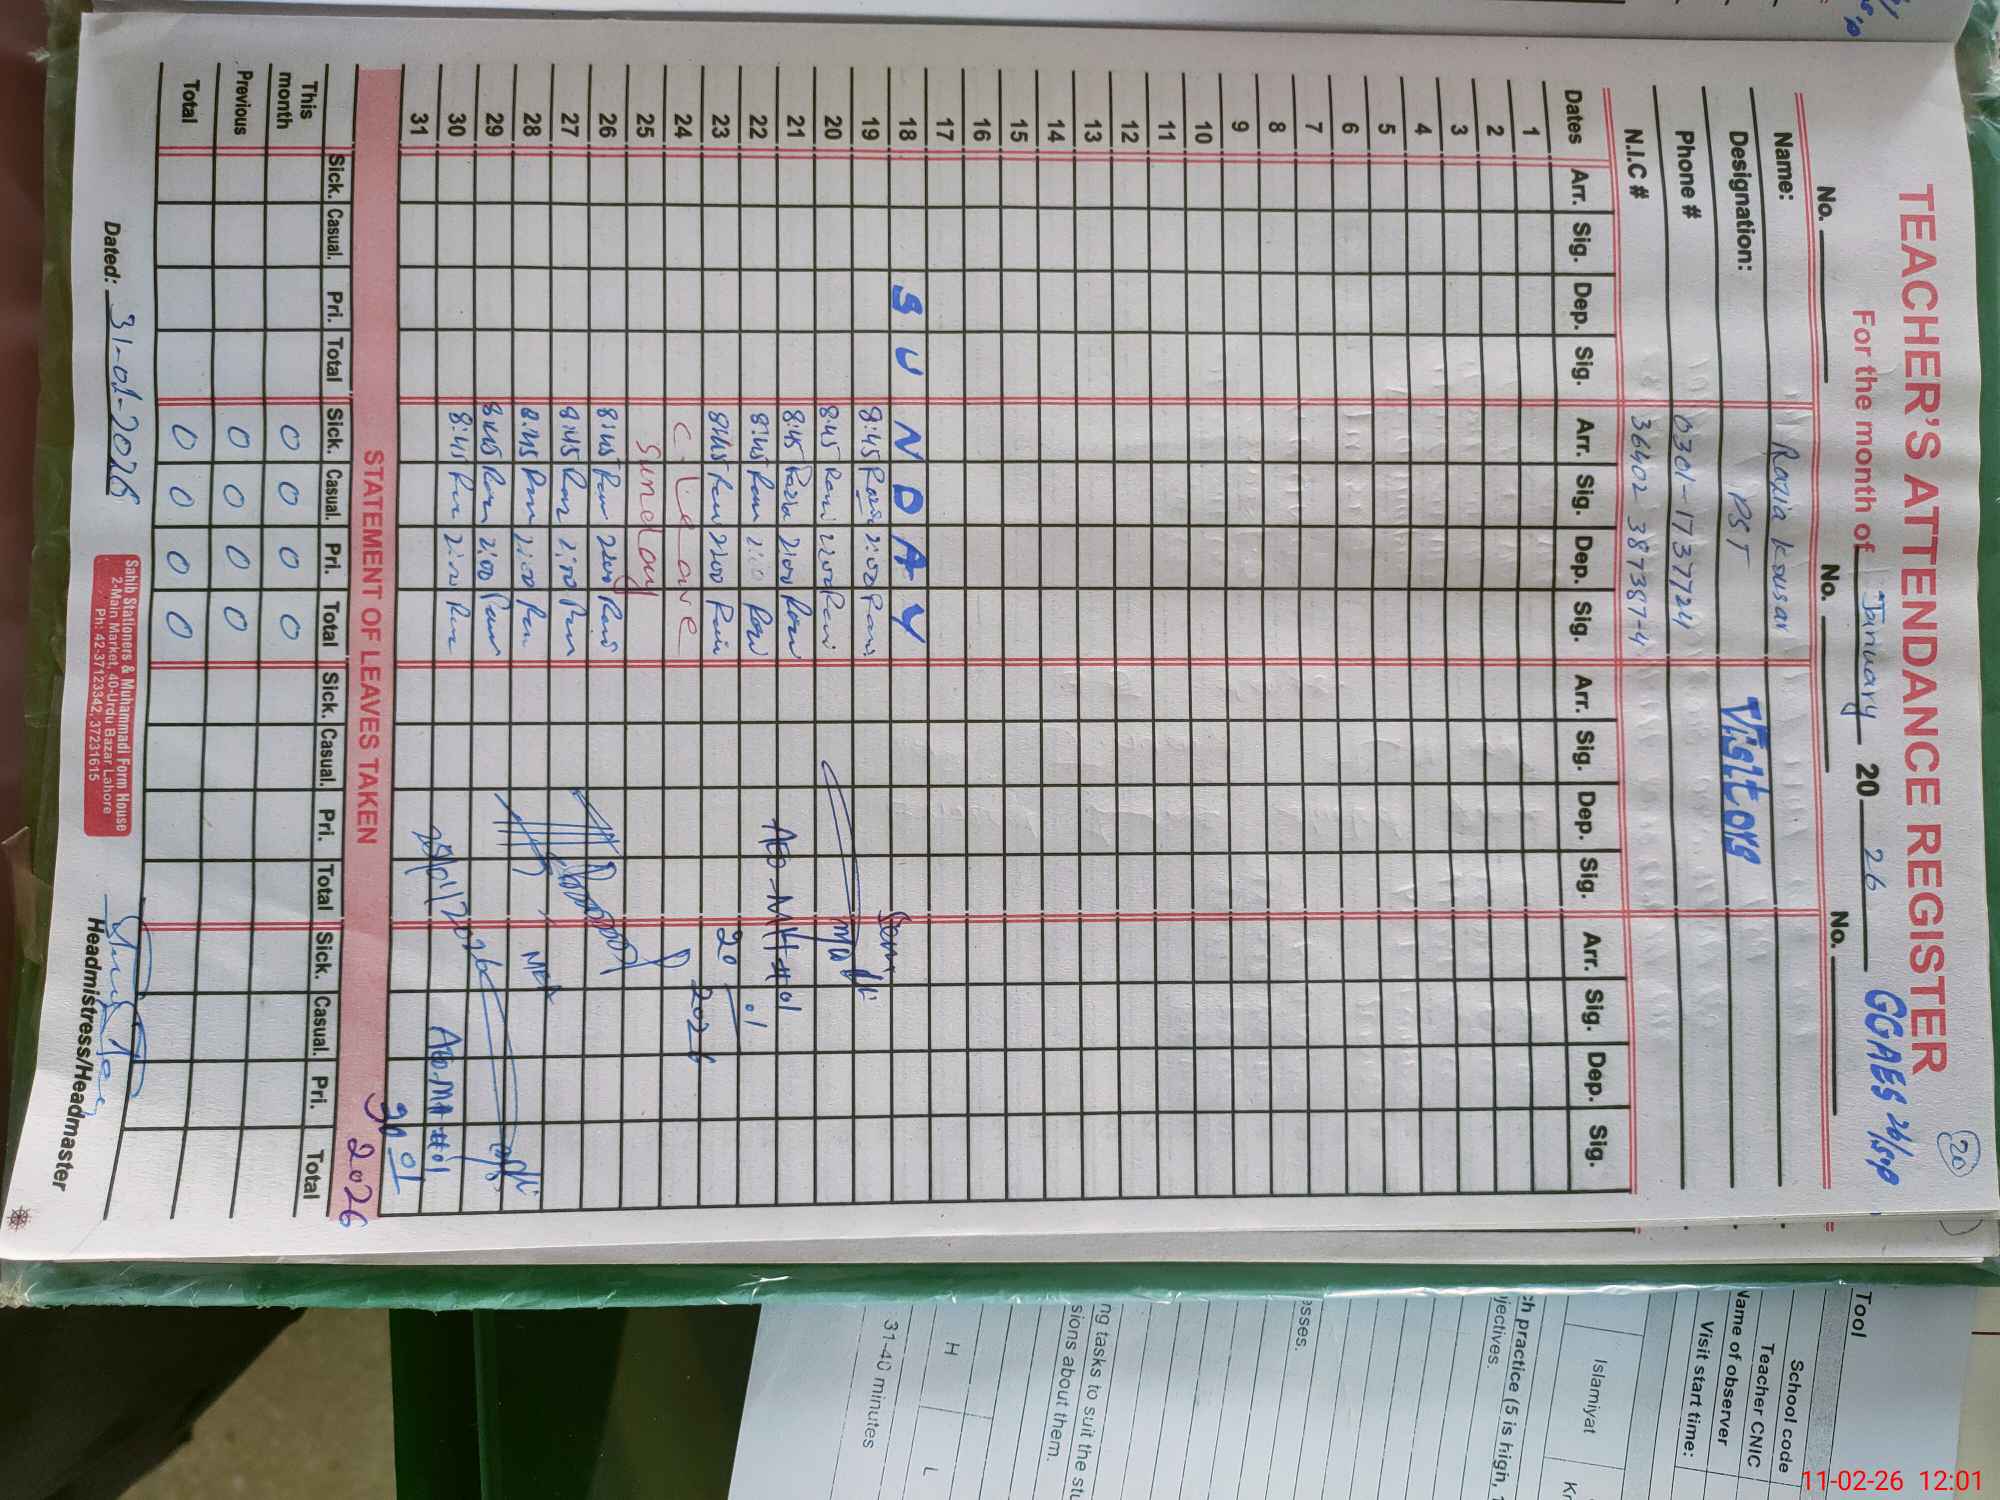 20
TEACHER'S ATTENDANCE REGISTER
For the month of January 20 26 GGAES 26/SP
No. No. No.
Name: Razia Kousar
Designation: PST Visitors
Phone # 0301-1737724
N.I.C # 36402 387387-4
Dates Arr. Sig. Dep. Sig. Arr. Sig. Dep. Sig. Arr. Sig. Dep. Sig. Arr. Sig. Dep. Sig.
1
2
3
4
5
6
7
8
9
10
11
12
13
14
15
16
17
18 SUNDAY
19 8:45 2:00
20 8:45 2:00
21 8:45 2:00 AEO-M#01
22 8:45 2:00
23 8:45 2:00 20.01
24 C. Leave 2026
25 Sunday
26 8:45 2:00
27 8:45 2:00
28 8:45 2:00 MEA
29 8:45 2:00
30 8:45 2:00 AEO-M#01
31 30 01
STATEMENT OF LEAVES TAKEN 2026
Sick. Casual. Pri. Total Sick. Casual. Pri. Total Sick. Casual. Pri. Total Sick. Casual. Pri. Total
This month 0 0 0 0
Previous 0 0 0 0
Total 0 0 0 0
Dated: 31-01-2026
Sahib Stationers & Muhammadi Form House
2-Main Market, 40-Urdu Bazar Lahore
Ph: 42-37123342, 37231615
Headmistress/Headmaster
Tool
School code
Teacher CNIC
Name of observer
Visit start time:
Islamiyat
ch practice (5 is high,
jectives.
asses.
ng tasks to suit the stu
sions about them.
H
L
31-40 minutes
11-02-26 12:01